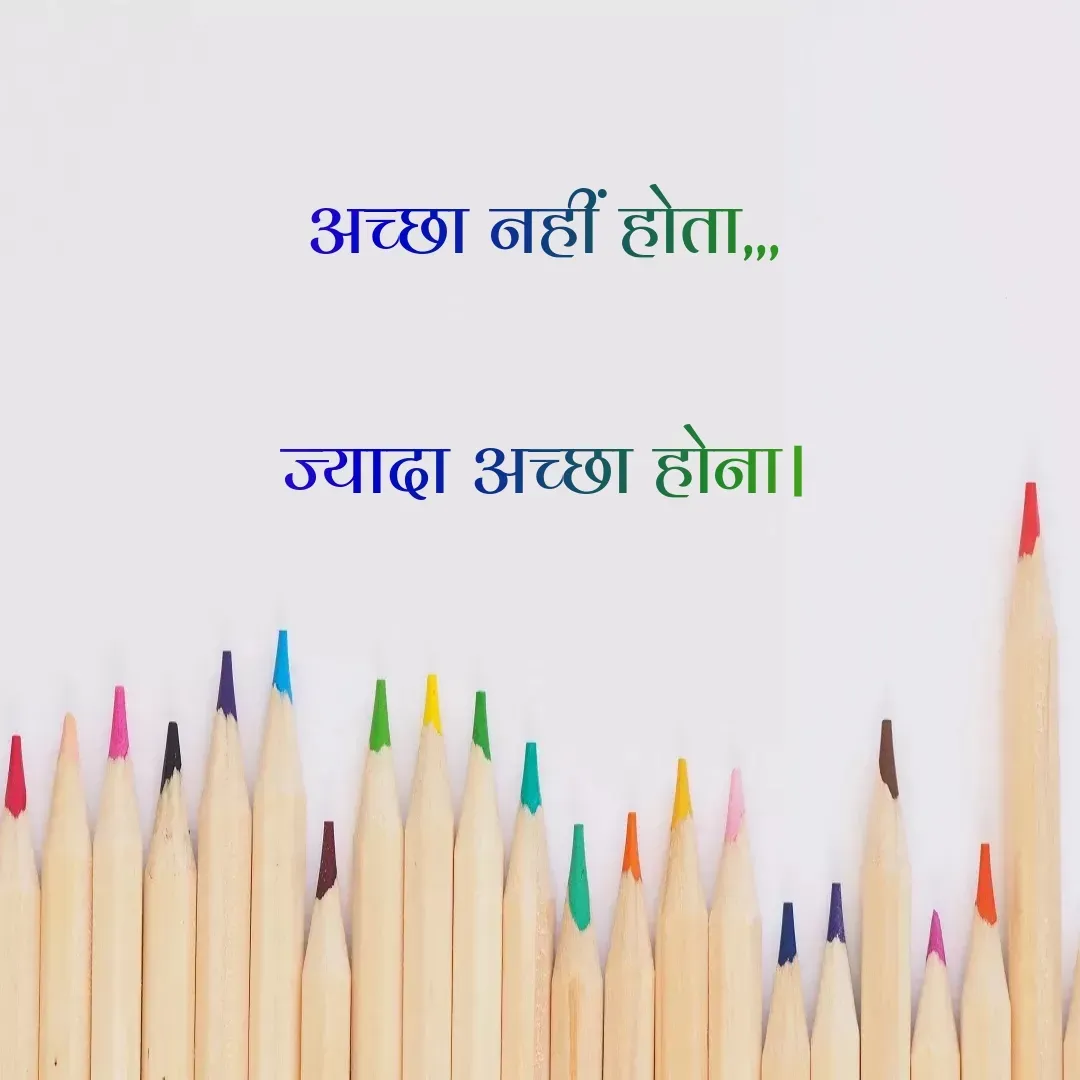 अच्छा नहीं होता,,,
ज्यादा अच्छा होना।